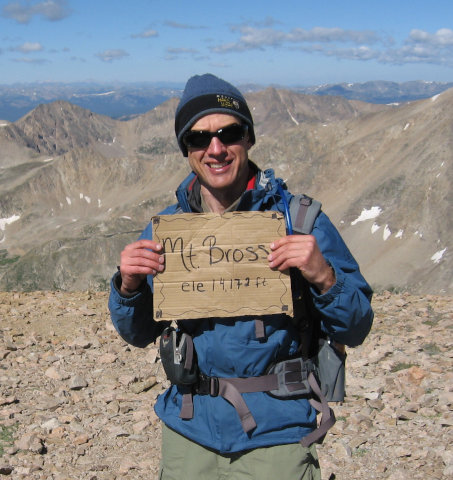 Mt. Bross
ele 14,172 ft